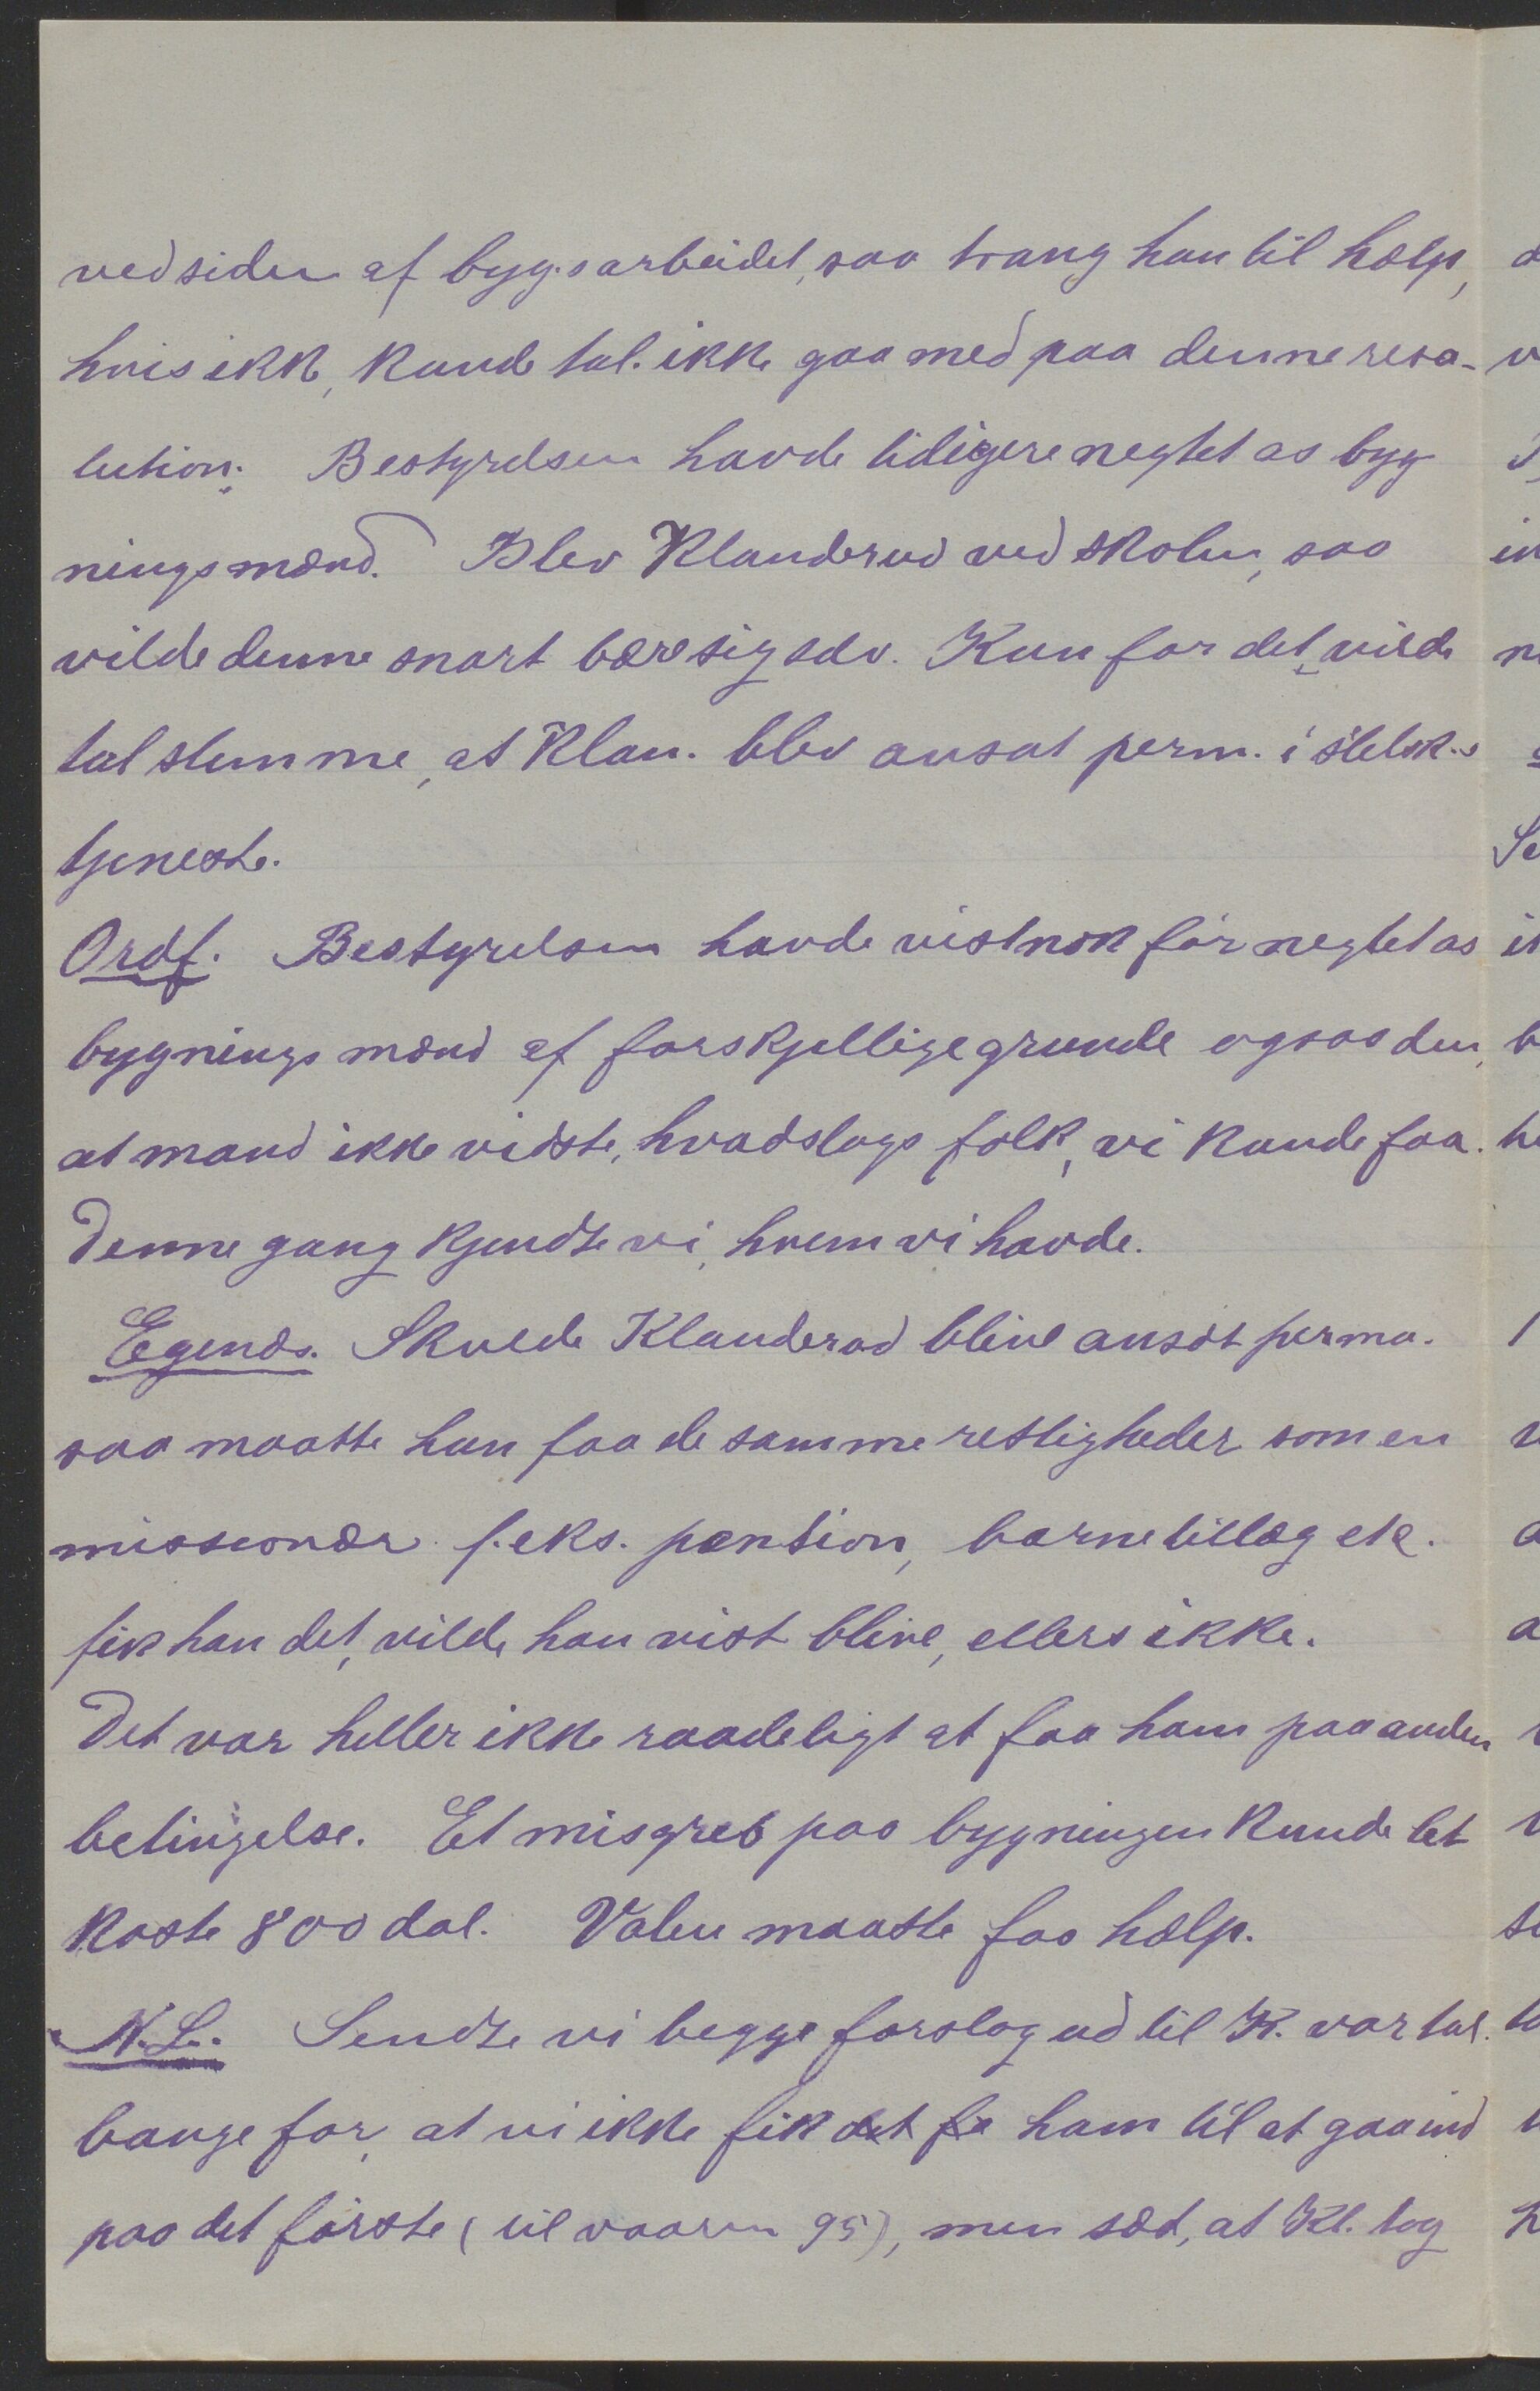 ved siden af byg.s arbeidet, saa trang han til hælp,
hvis ikke, kunde tal. ikke gaa med paa denne reso-
lution. Bestyrelsen havde tidligere negtet os byg
ningsmænd. Blev Klanderud ved skolen, saa
vilde denne snart bære sig selv. Kun for det vilde
tal stemme, at Klan. blev ansat perm. i selsk.s
tjeneste.
Ordf. Bestyrelsen havde vistnok før negtet os
bygningsmænd af forskjellige grunde ogsaa den,
at mand ikke vidste, hvadslags folk, vi kunde faa.
Denne gang kjendte vi, hvem vi havde.
Egenæs. Skulde Klanderud blive ansat perma.
saa maatte han faa de samme rettigheder som en
missionær f. eks. pention, barnetillæg etc.
fik han det, vilde han vist blive, ellers ikke.
Det var heller ikke raadeligt at faa ham paa anden
betingelse. Et misgreb paa bygningen kunde let
koste 800 dol. Valen maatte faa hælp.
N.L. Sendte vi begge forslag ud til K. var tal.
bange for, at vi ikke fik det fo ham til at gaa ind
paa det første (til vaaren 95), men sæt, at Kl. tog